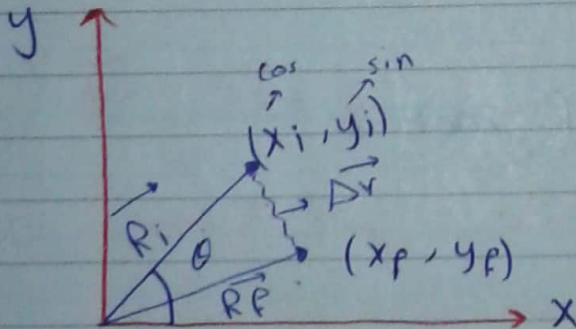 y
cos sin
(xi, yi)
Δr
Ri
θ
(xf, yf)
Rf
x